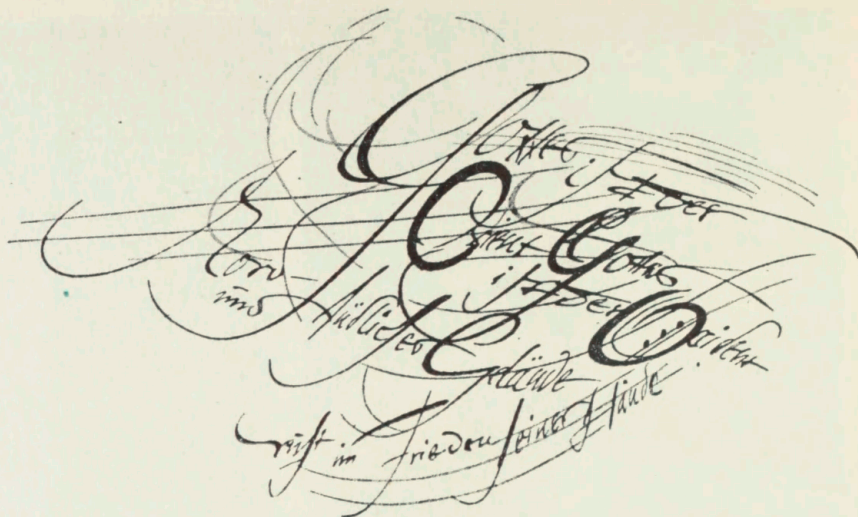 Gottes ist der
Orient Gottes
ist der Okzident
Nord-
und südliches Gelände
ruht im Frieden seiner Hände